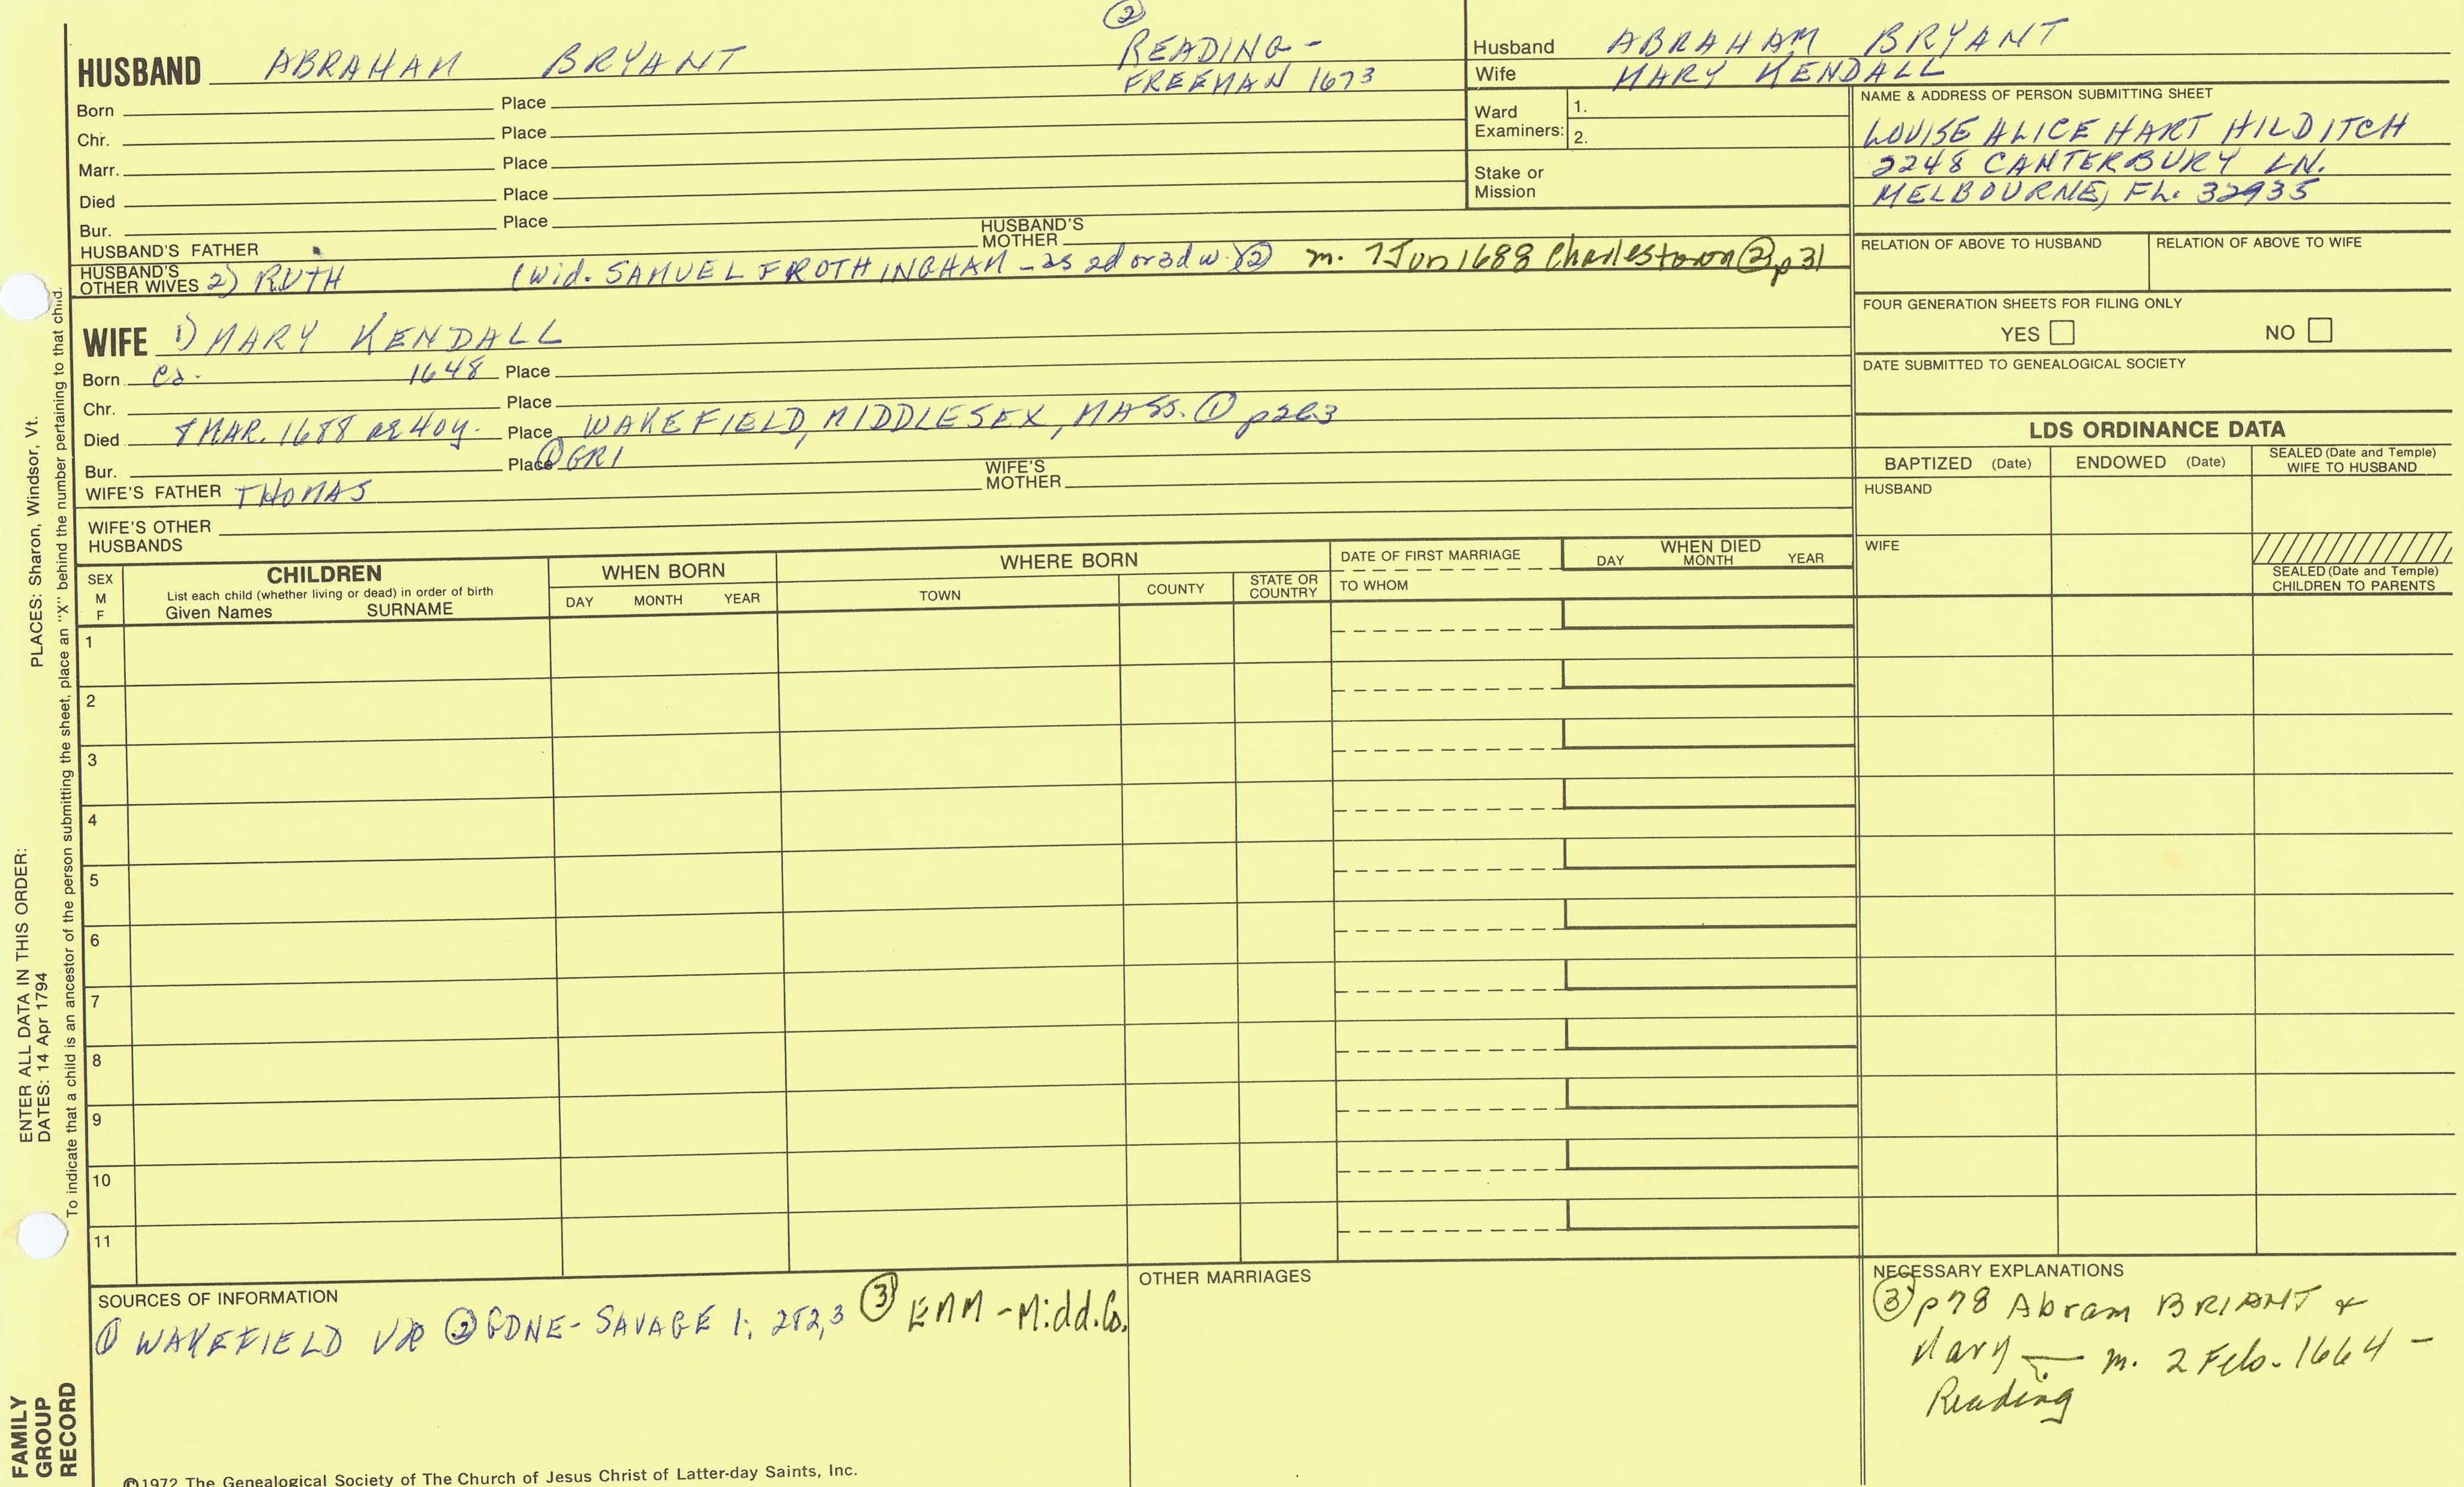 ②
HUSBAND ABRAHAM BRYANT READING -
FREEMAN 1673
Born Place
Chr. Place
Marr. Place
Died Place
Bur. Place
HUSBAND'S FATHER HUSBAND'S MOTHER
HUSBAND'S OTHER WIVES 2) RUTH (wid. SAMUEL FROTHINGHAM - as 2d or 3d w.) ② m. 7 Jun 1688 Charlestown ② p31
WIFE 1) MARY KENDALL
Born ca. 1648 Place
Chr. Place
Died 8 MAR. 1688 ae 40y. Place WAKEFIELD, MIDDLESEX, MASS. ① p263
Bur. Place ① GR1
WIFE'S FATHER THOMAS WIFE'S MOTHER
WIFE'S OTHER HUSBANDS
Husband ABRAHAM BRYANT
Wife MARY KENDALL
Ward Examiners: 1.
2.
Stake or Mission
NAME & ADDRESS OF PERSON SUBMITTING SHEET
LOUISE ALICE HART HILDITCH
2248 CANTERBURY LN.
MELBOURNE, FL. 32935
RELATION OF ABOVE TO HUSBAND RELATION OF ABOVE TO WIFE
FOUR GENERATION SHEETS FOR FILING ONLY
YES NO
DATE SUBMITTED TO GENEALOGICAL SOCIETY
LDS ORDINANCE DATA
BAPTIZED (Date) ENDOWED (Date) SEALED (Date and Temple) WIFE TO HUSBAND
HUSBAND
WIFE
SEALED (Date and Temple) CHILDREN TO PARENTS
SEX M F
CHILDREN
List each child (whether living or dead) in order of birth
Given Names SURNAME
WHEN BORN
DAY MONTH YEAR
WHERE BORN
TOWN COUNTY STATE OR COUNTRY
DATE OF FIRST MARRIAGE
TO WHOM
WHEN DIED
DAY MONTH YEAR
1
2
3
4
5
6
7
8
9
10
11
SOURCES OF INFORMATION
① WAKEFIELD VR ② GDNE - SAVAGE 1; 282,3 ③ EMM - Midd. Co.
OTHER MARRIAGES
NECESSARY EXPLANATIONS
③ p78 Abram BRIANT &
Mary — m. 2 Feb. 1664 -
Reading
©1972 The Genealogical Society of The Church of Jesus Christ of Latter-day Saints, Inc.
FAMILY GROUP RECORD
ENTER ALL DATA IN THIS ORDER:
DATES: 14 Apr 1794
PLACES: Sharon, Windsor, Vt.
To indicate that a child is an ancestor of the person submitting the sheet, place an "X" behind the number pertaining to that child.